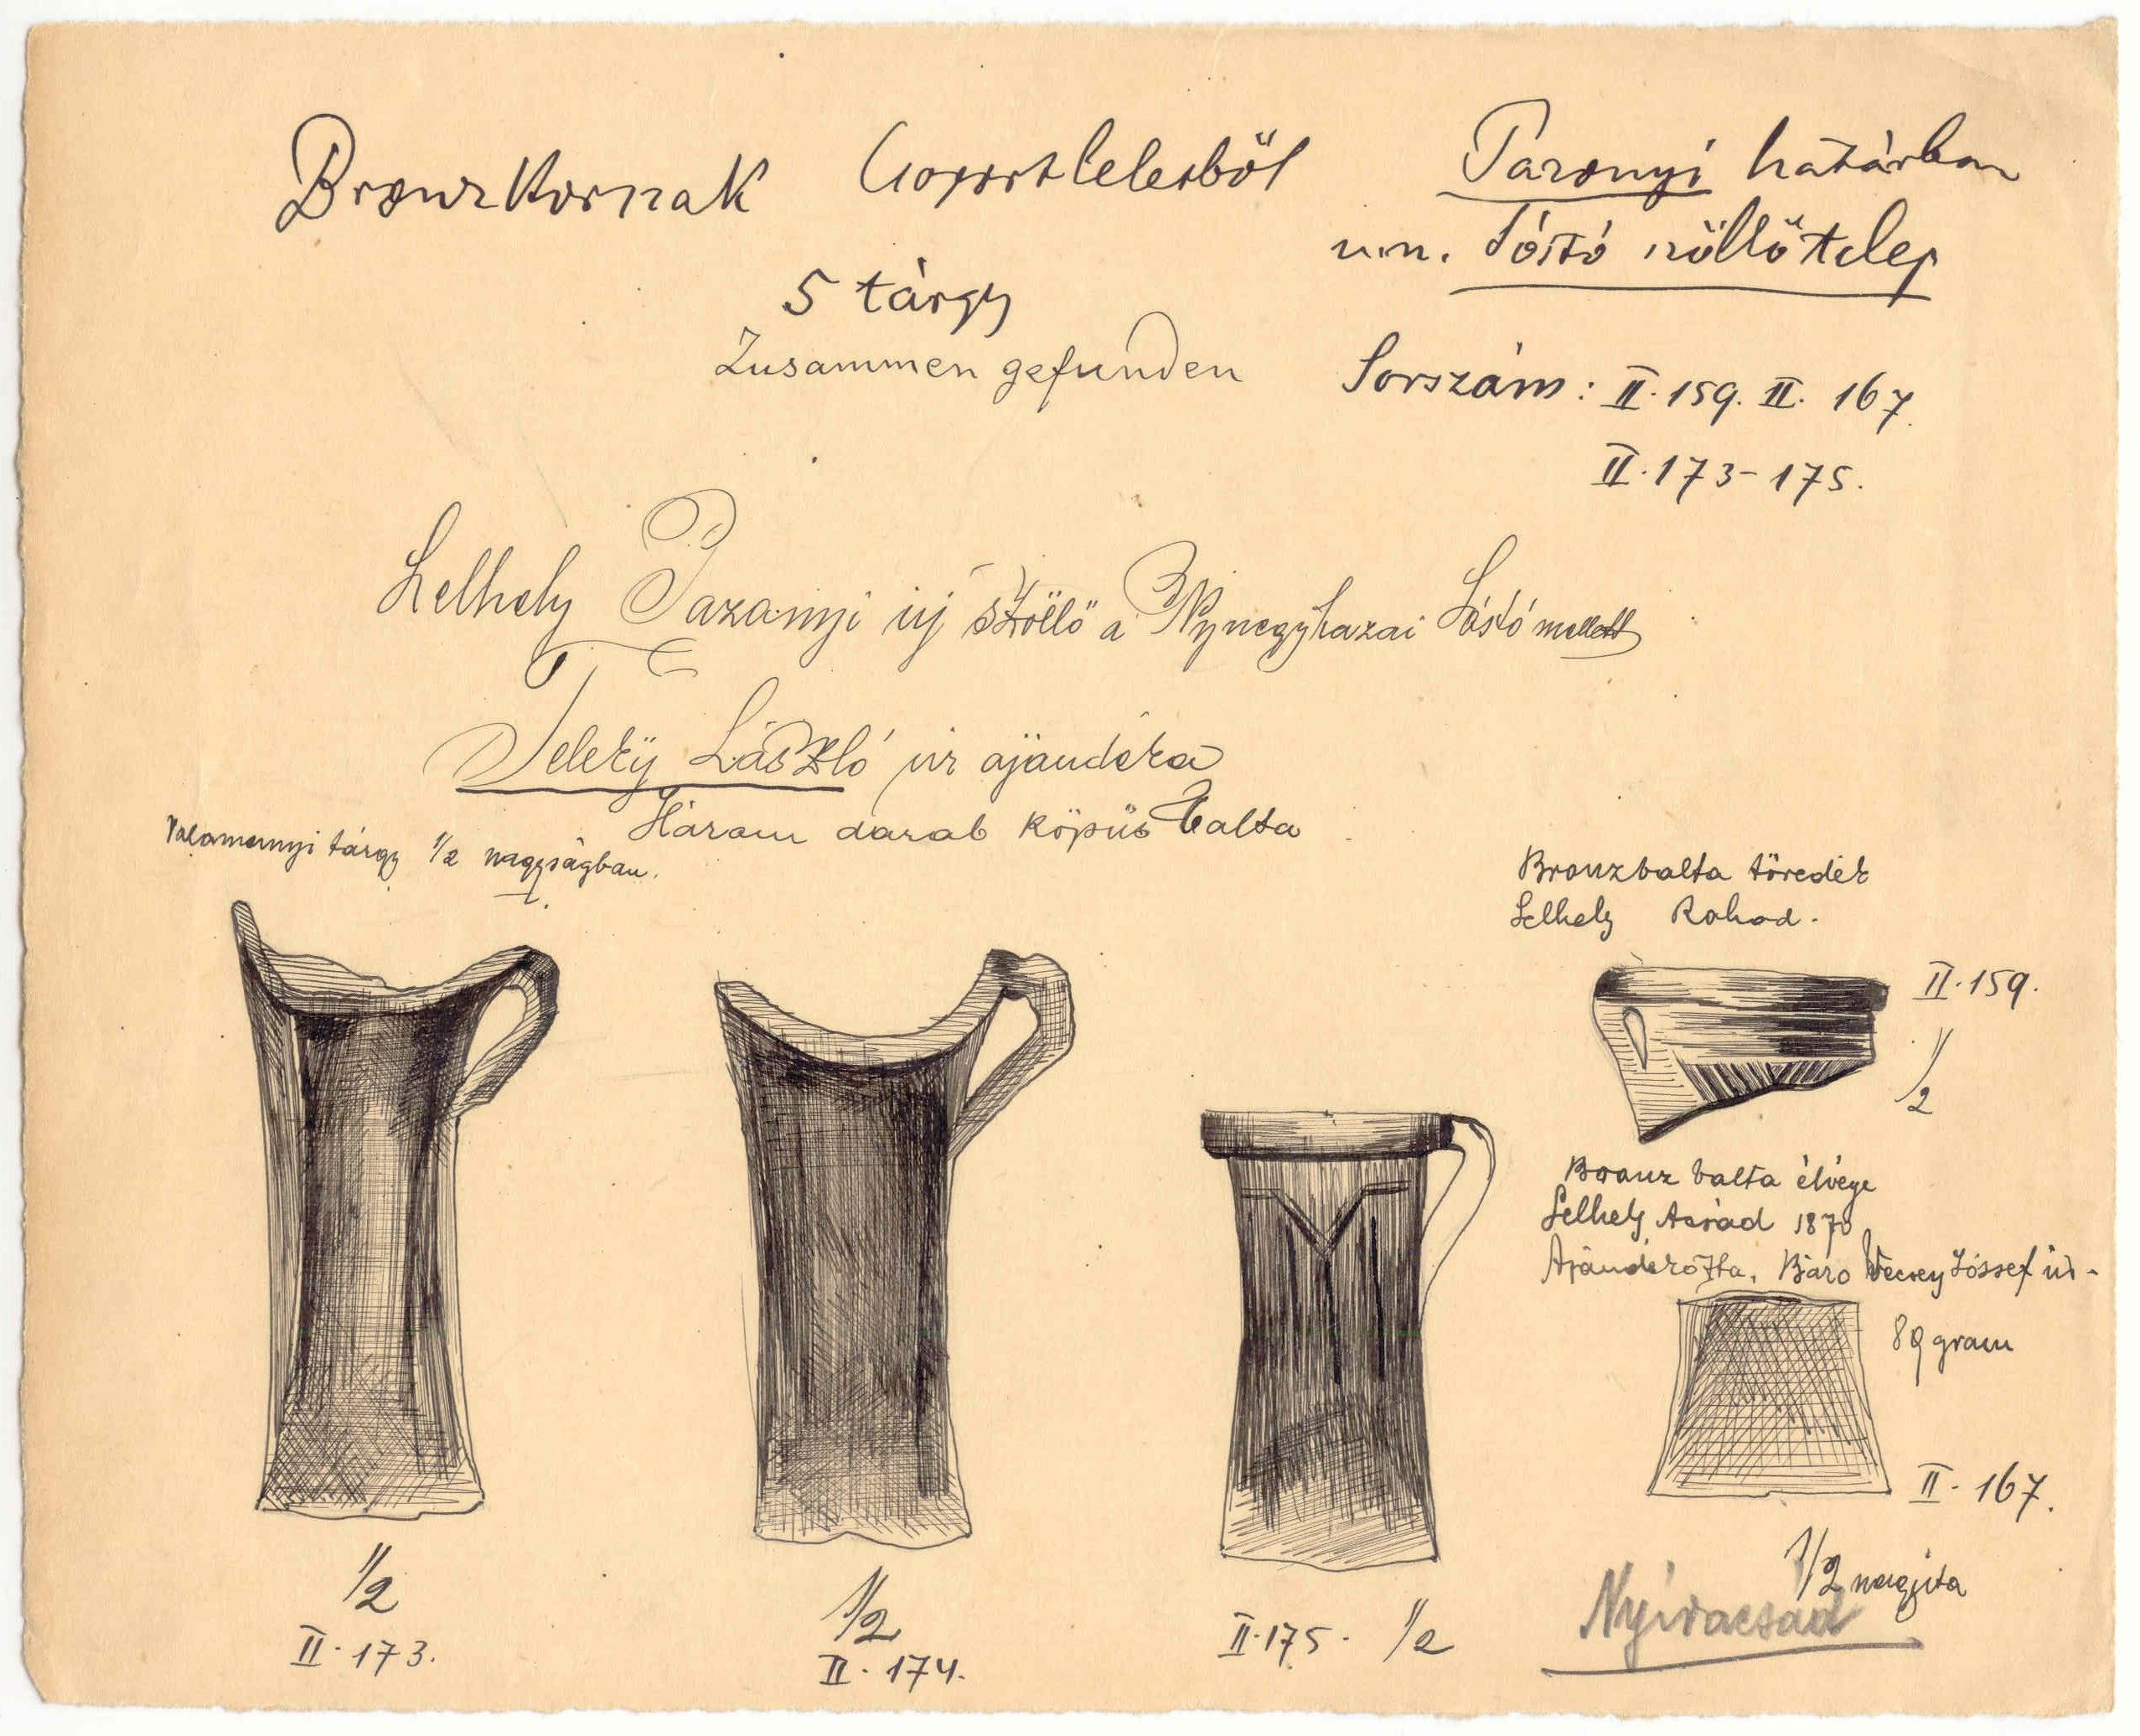 Bronzkornak Csoportleletből
5 tárgy
Zusammen gefunden
Pazonyi határban
u.n. Sóstó szöllőtelep
Sorszám: II. 159. II. 167.
II. 173-175.
Lelhely Pazonyi új Szöllő a Nyiregyhazai Sóstó mellett
Teleky László úr ajándéka
Három darab köpüs balta
Valamennyi tárgy 1/2 nagyságban.
Bronzbalta töredék
Lelhely Rohod.
II. 159.
1/2
Bronz balta élvége
Lelhely Acsád 1870
Ajándékozta. Báro Vecsey Jóssef úr-
89 gram
II. 167.
1/2 nagyita
Nyíracsad
1/2
II. 173.
1/2
II. 174.
II. 175. 1/2